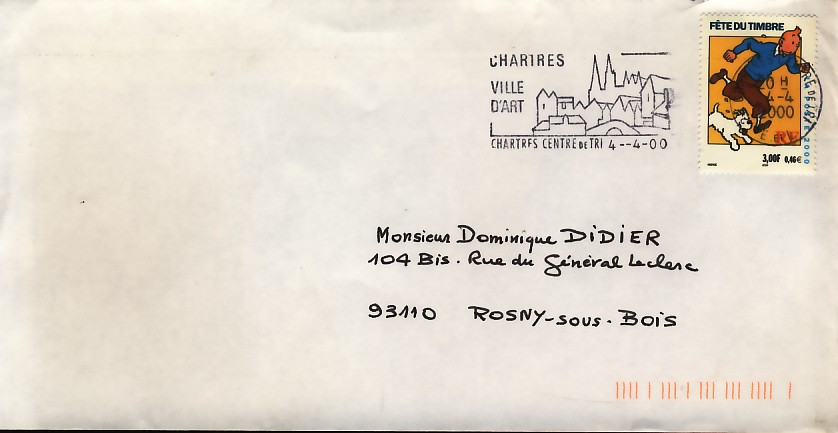 CHARTRES
VILLE
D'ART
CHARTRES CENTRE DE TRI 4--4-00
FÊTE DU TIMBRE
20 H
4-4
2000
RF
3,00F 0,46€
Monsieur Dominique DIDIER
104 Bis. Rue du Général Leclerc
93110 ROSNY-sous-BOIS